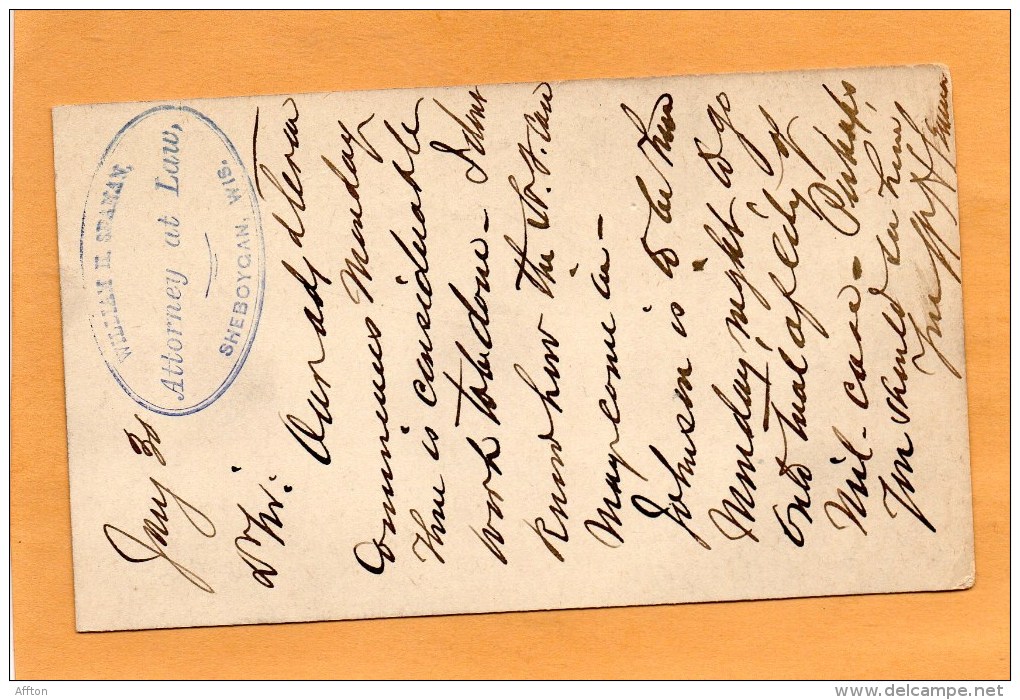 WILLIAM H. SEAMAN,
Attorney at Law,
SHEBOYGAN, WIS.
Jany 30
D Sir:
Our adj term
commences Monday
There is considerable
work to be done - I dont
know how the W. F. case
may come in -
Johnson is to be here
Monday night to go
onto trial of city of
Mil - case - Perhaps
You should see him,
Yrs W H Seaman
Affton
www.delcampe.net